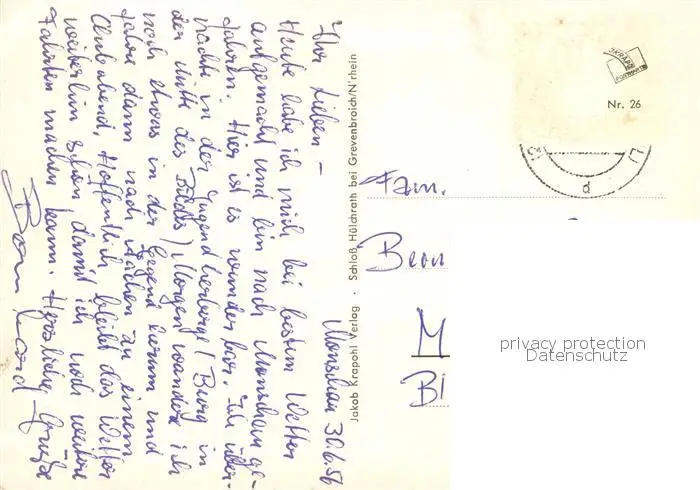 Monschau 30.6.56
Ihr Lieben –
Heute habe ich mich bei bestem Wetter
aufgemacht und bin nach Monschau ge-
fahren. Hier ist es wunderbar. Ich über-
nachte in der Jugendherberge (Burg in
der Mitte des Bildes) Morgen wandere ich
noch etwas in der Gegend herum und
fahre dann nach Aachen zu einem
Clubabend. Hoffentlich bleibt das Wetter
weiterhin schön, damit ich noch weitere
Fahrten machen kann. Herzliche Grüße
Jakob Krapohl Verlag · Schloß Hülchrath bei Grevenbroich/N'rhein
Nr. 26
d
Fam.
M
BI
privacy protection
Datenschutz